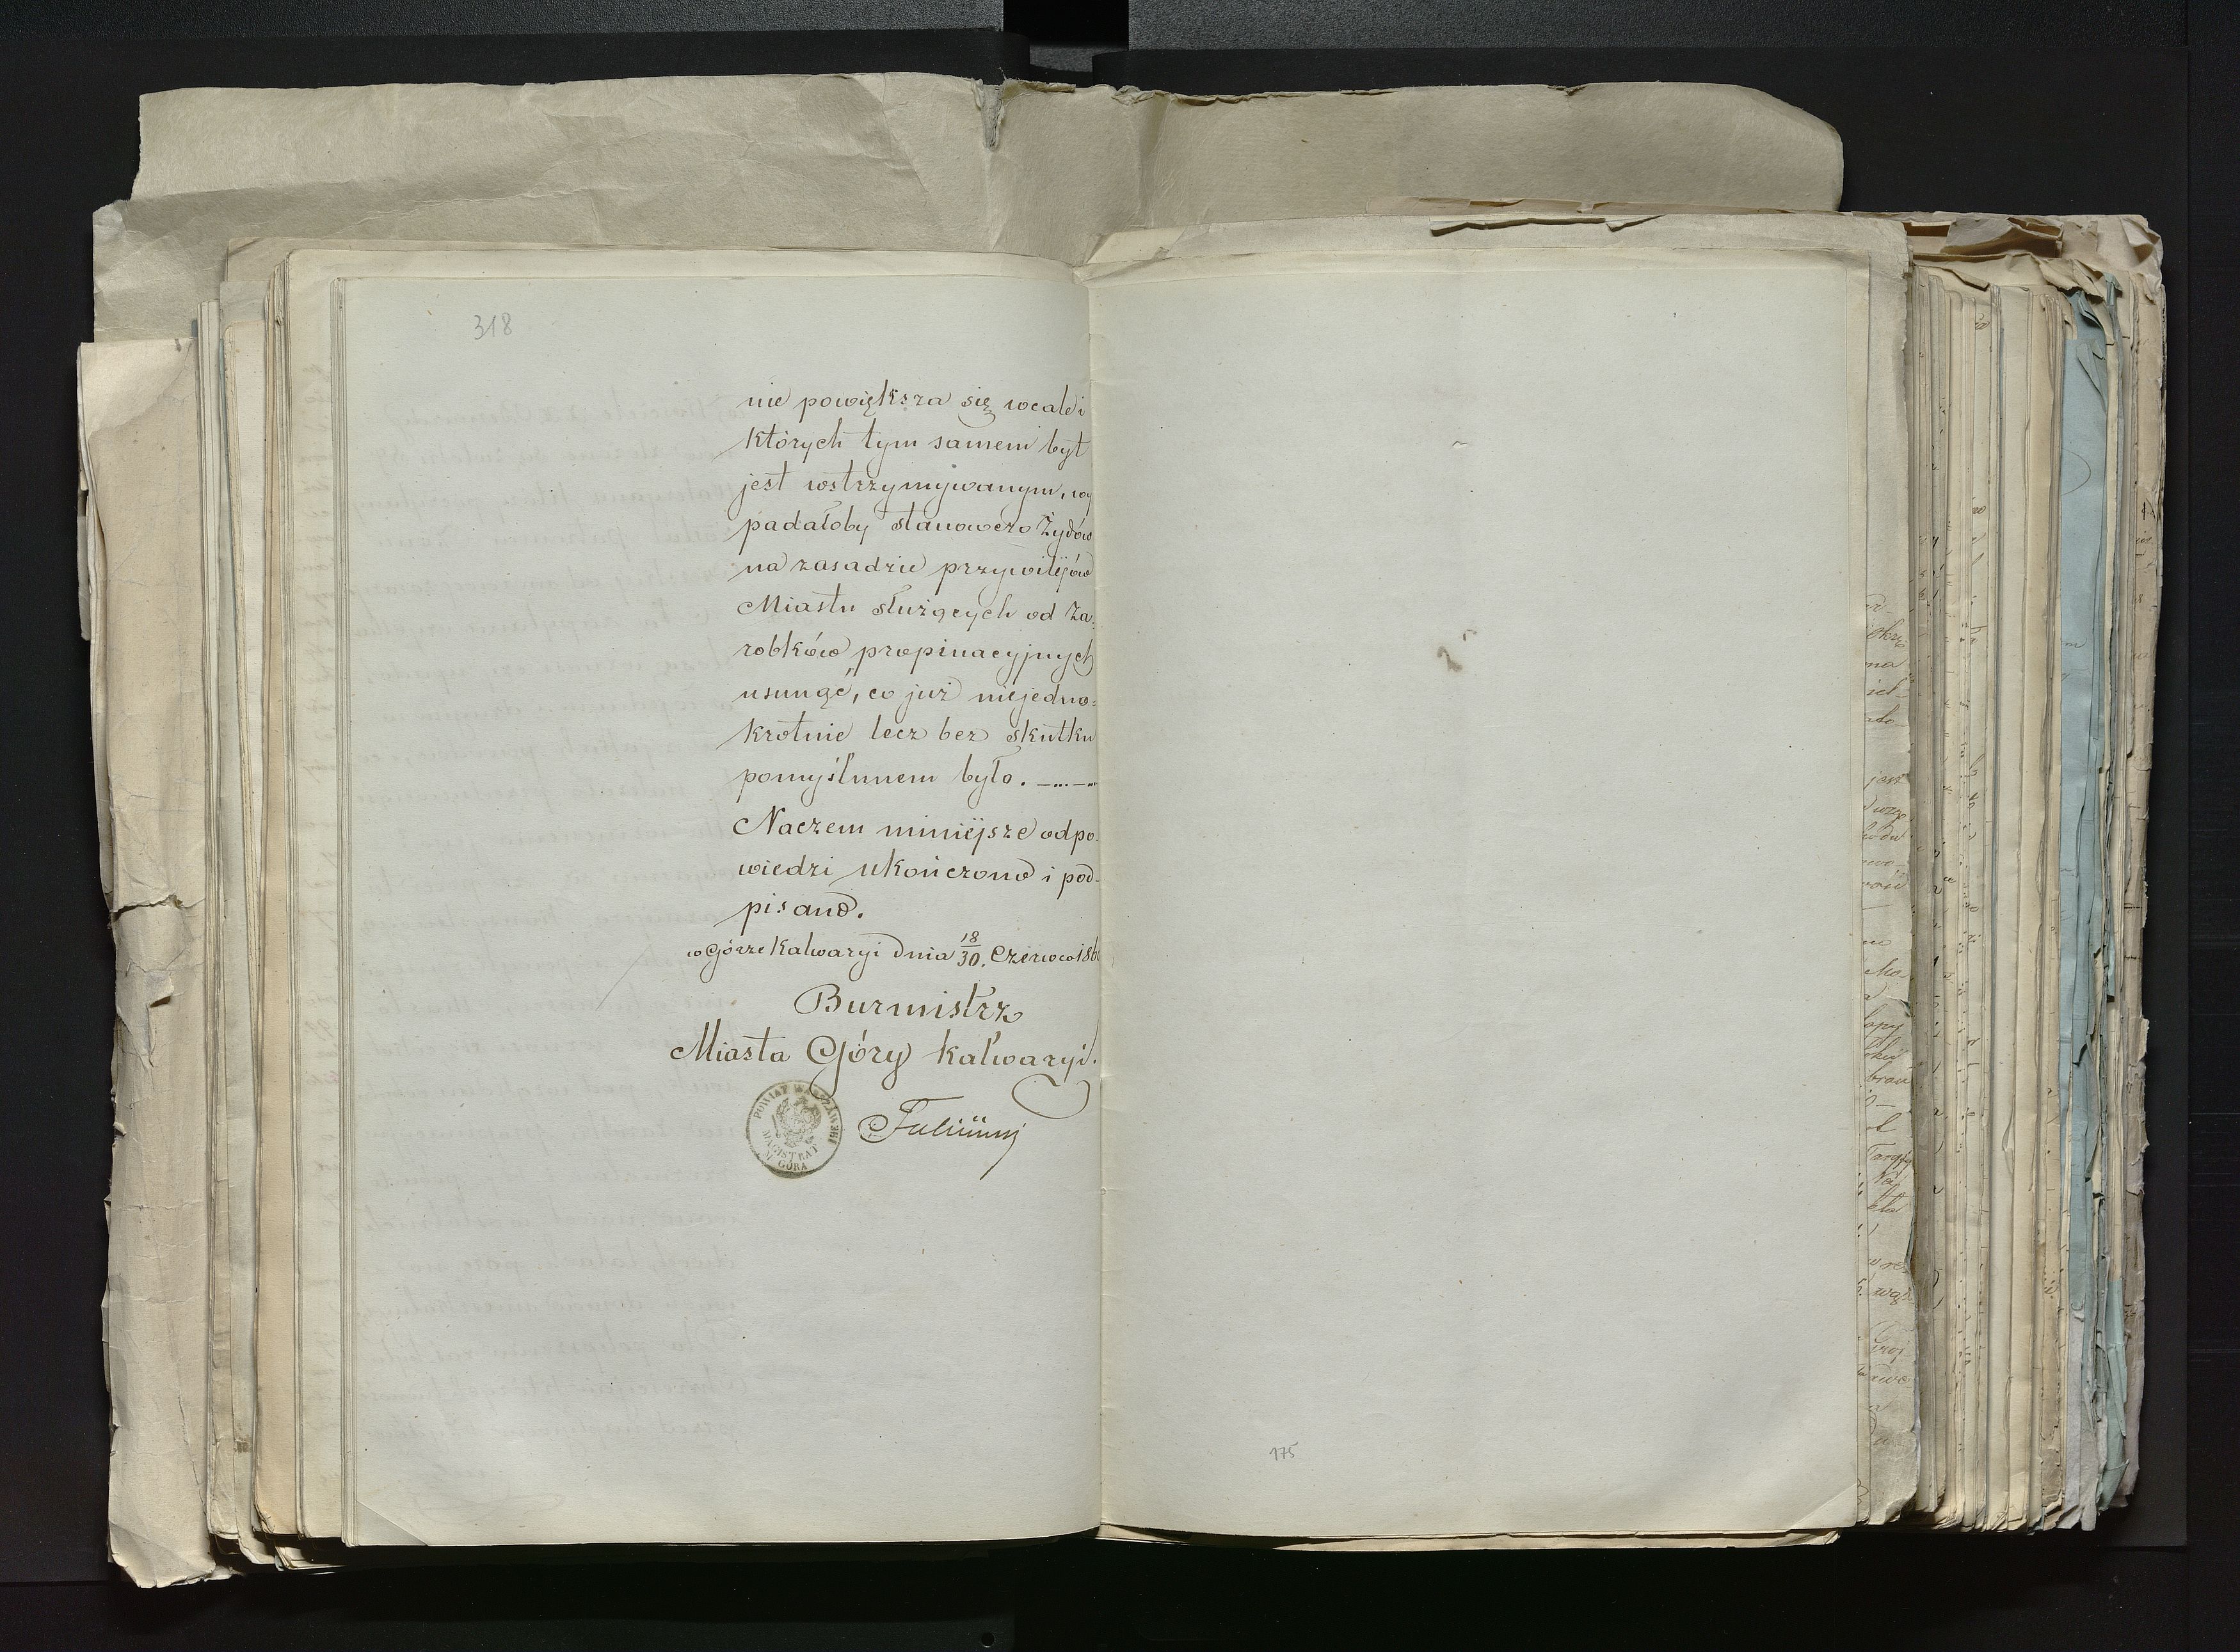 318
nie powiększa się wcale i
których tym samem byt
jest wstrzymywanym, wy
padałoby stanowczo Żydów
na zasadzie przywilejów
Miastu służących od Za-
robków propinacyjnych
usunąć, co już niejedno-
krotnie lecz bez skutku
pomyślnnem było.
Naczem miniejsze odpo-
wiedzi ukończono i pod-
pisano.
w Górze Kalwaryi dnia 18/30. Czerwca 186
Burmistrz
Miasta Góry Kalwaryi.
POWIAT WARSZAWSKI
MAGISTRAT
M. GÓRA
175